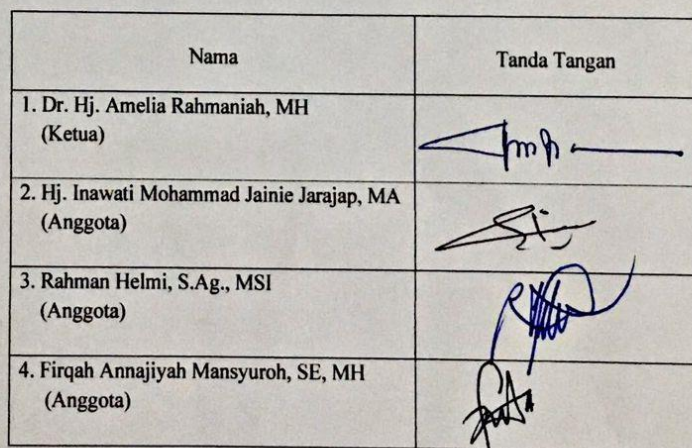 Nama
Tanda Tangan
1. Dr. Hj. Amelia Rahmaniah, MH
(Ketua)
2. Hj. Inawati Mohammad Jainie Jarajap, MA
(Anggota)
3. Rahman Helmi, S.Ag., MSI
(Anggota)
4. Firqah Annajiyah Mansyuroh, SE, MH
(Anggota)